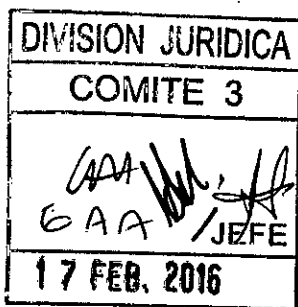 DIVISION JURIDICA
COMITE 3
GAA
/JEFE
17 FEB. 2016